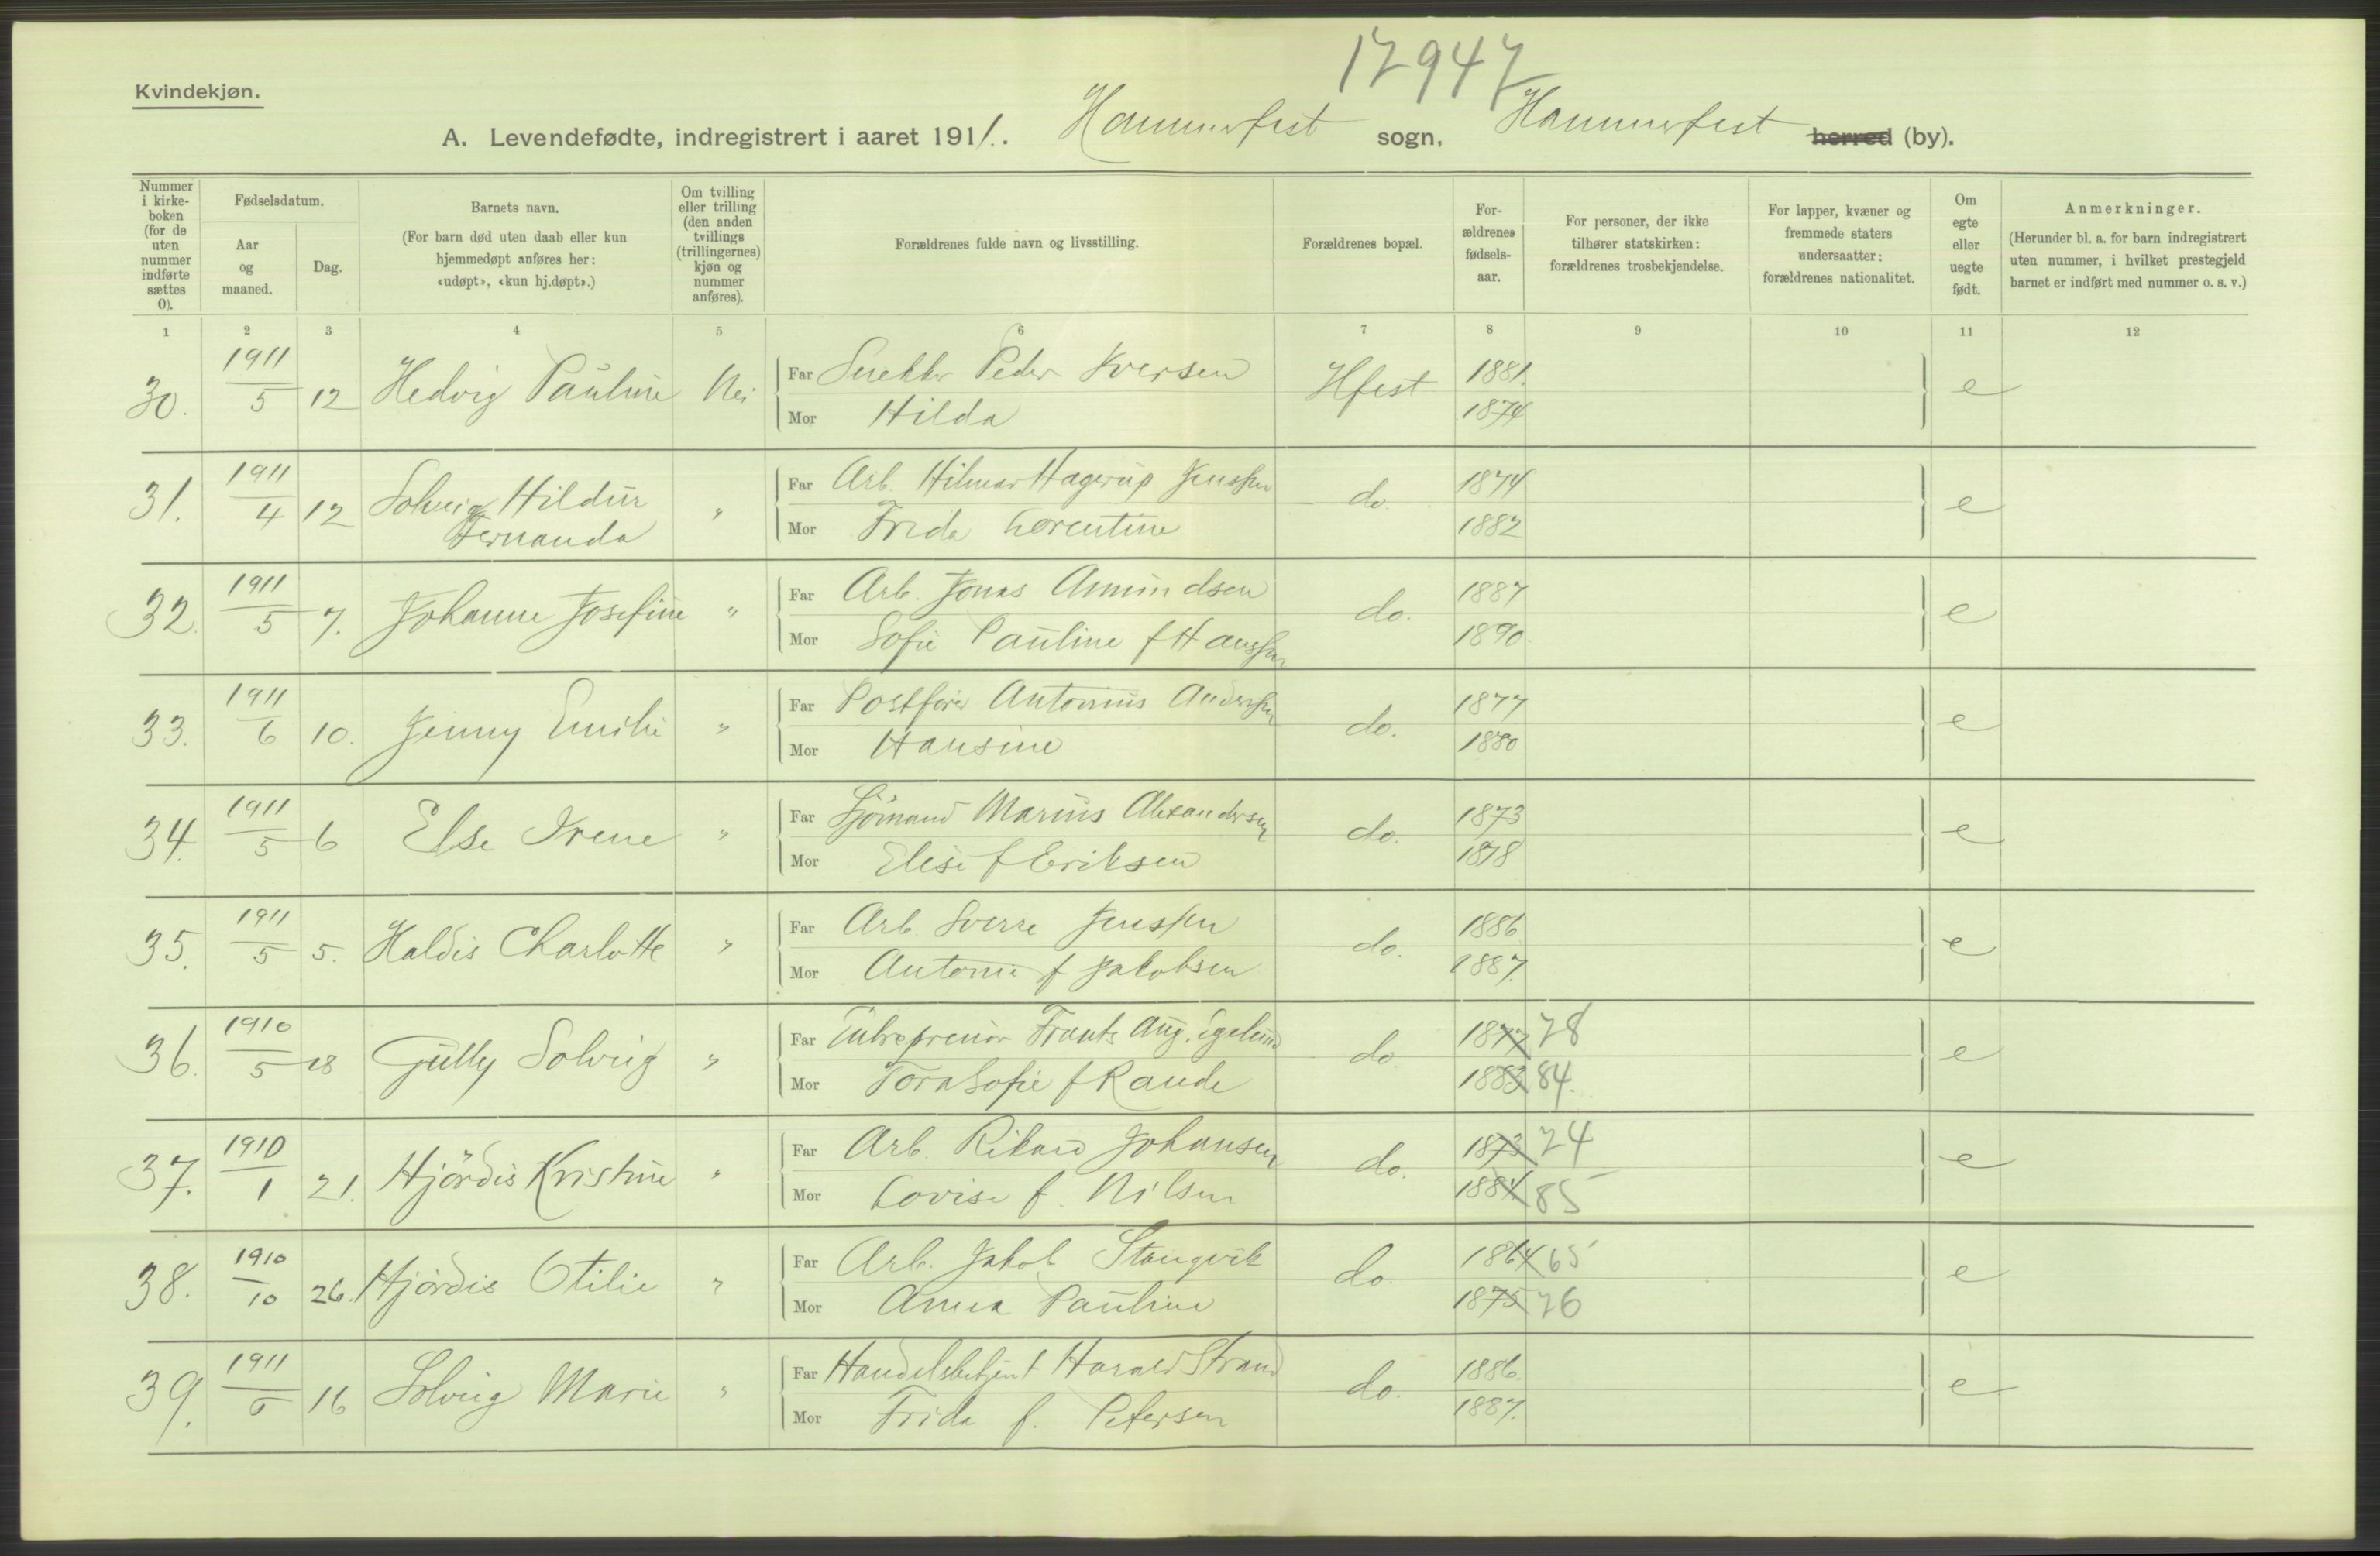 17947
Kvindekjøn.
A. Levendefødte, indregistrert i aaret 1911. Hammerfest sogn, Hammerfest herred (by).
Nummer i kirke-boken (for de uten nummer indførte sættes 0).
Fødselsdatum.
Aar og maaned.
Dag.
Barnets navn.
(For barn død uten daab eller kun hjemmedøpt anføres her: «udøpt», «kun hj.døpt».)
Om tvilling eller trilling (den anden tvillings (trillingernes) kjøn og nummer anføres).
Forældrenes fulde navn og livsstilling.
Forældrenes bopæl.
For-ældrenes fødsels-aar.
For personer, der ikke tilhører statskirken: forældrenes trosbekjendelse.
For lapper, kvæner og fremmede staters undersaatter: forældrenes nationalitet.
Om egte eller uegte født.
Anmerkninger.
(Herunder bl. a. for barn indregistrert uten nummer, i hvilket prestegjeld barnet er indført med nummer o. s. v.)
1 2 3 4 5 6 7 8 9 10 11 12
30. 1911/5 12 Hedvig Pauline Nei Far Snekker Peder Iversen Hfest 1881. e
Mor Hilda 1874
31. 1911/4 12 Solveig Hildur Fernanda " Far Arb. Hilmar Hagerup Jenssen do. 1874 e
Mor Frida Lorentine 1882
32. 1911/5 7. Johanne Josefine " Far Arb. Jonas Amundsen do. 1887 e
Mor Sofie Pauline f Hanssen 1890.
33. 1911/6 10. Jenny Emilie " Far Postfører Antonius Anderssen do. 1877 e
Mor Hansine 1880
34. 1911/5 6 Else Irene " Far Sjömand Marius Alexandersen do. 1873 e
Mor Elise f Eriksen 1878
35. 1911/5 5. Haldis Charlotte " Far Arb. Sverre Jenssen do. 1886 e
Mor Antonie f Jakobsen 1887.
36. 1910/5 28 Gully Solveig " Far Entreprenör Frants Aug. Egelund do. 1877 78 e
Mor Tora Sofie f Rande 1883 84.
37. 1910/1 21. Hjördis Kristine " Far Arb. Rikard Johansen do. 1873 74 e
Mor Lovise f. Nilsen 1884 85
38. 1910/10 26. Hjördis Otilie " Far Arb. Jakob Stangvik do. 1864 65 e
Mor Anna Pauline 1875 76
39. 1911/6 16 Solveig Marie " Far Handelsbetjent Harald Strand do. 1886. e
Mor Frida f. Petersen 1887.